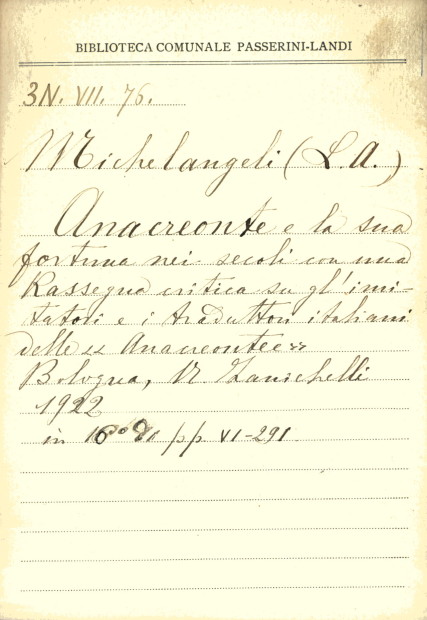 BIBLIOTECA COMUNALE PASSERINI-LANDI
3N. VII. 76.
Michelangeli (L. A.)
Anacreonte e la sua
fortuna nei secoli con una
Rassegna critica su gl'imi-
tatori e i traduttori italiani
delle « Anacreontee »
Bologna, N. Zanichelli
1922
in pp VI-291